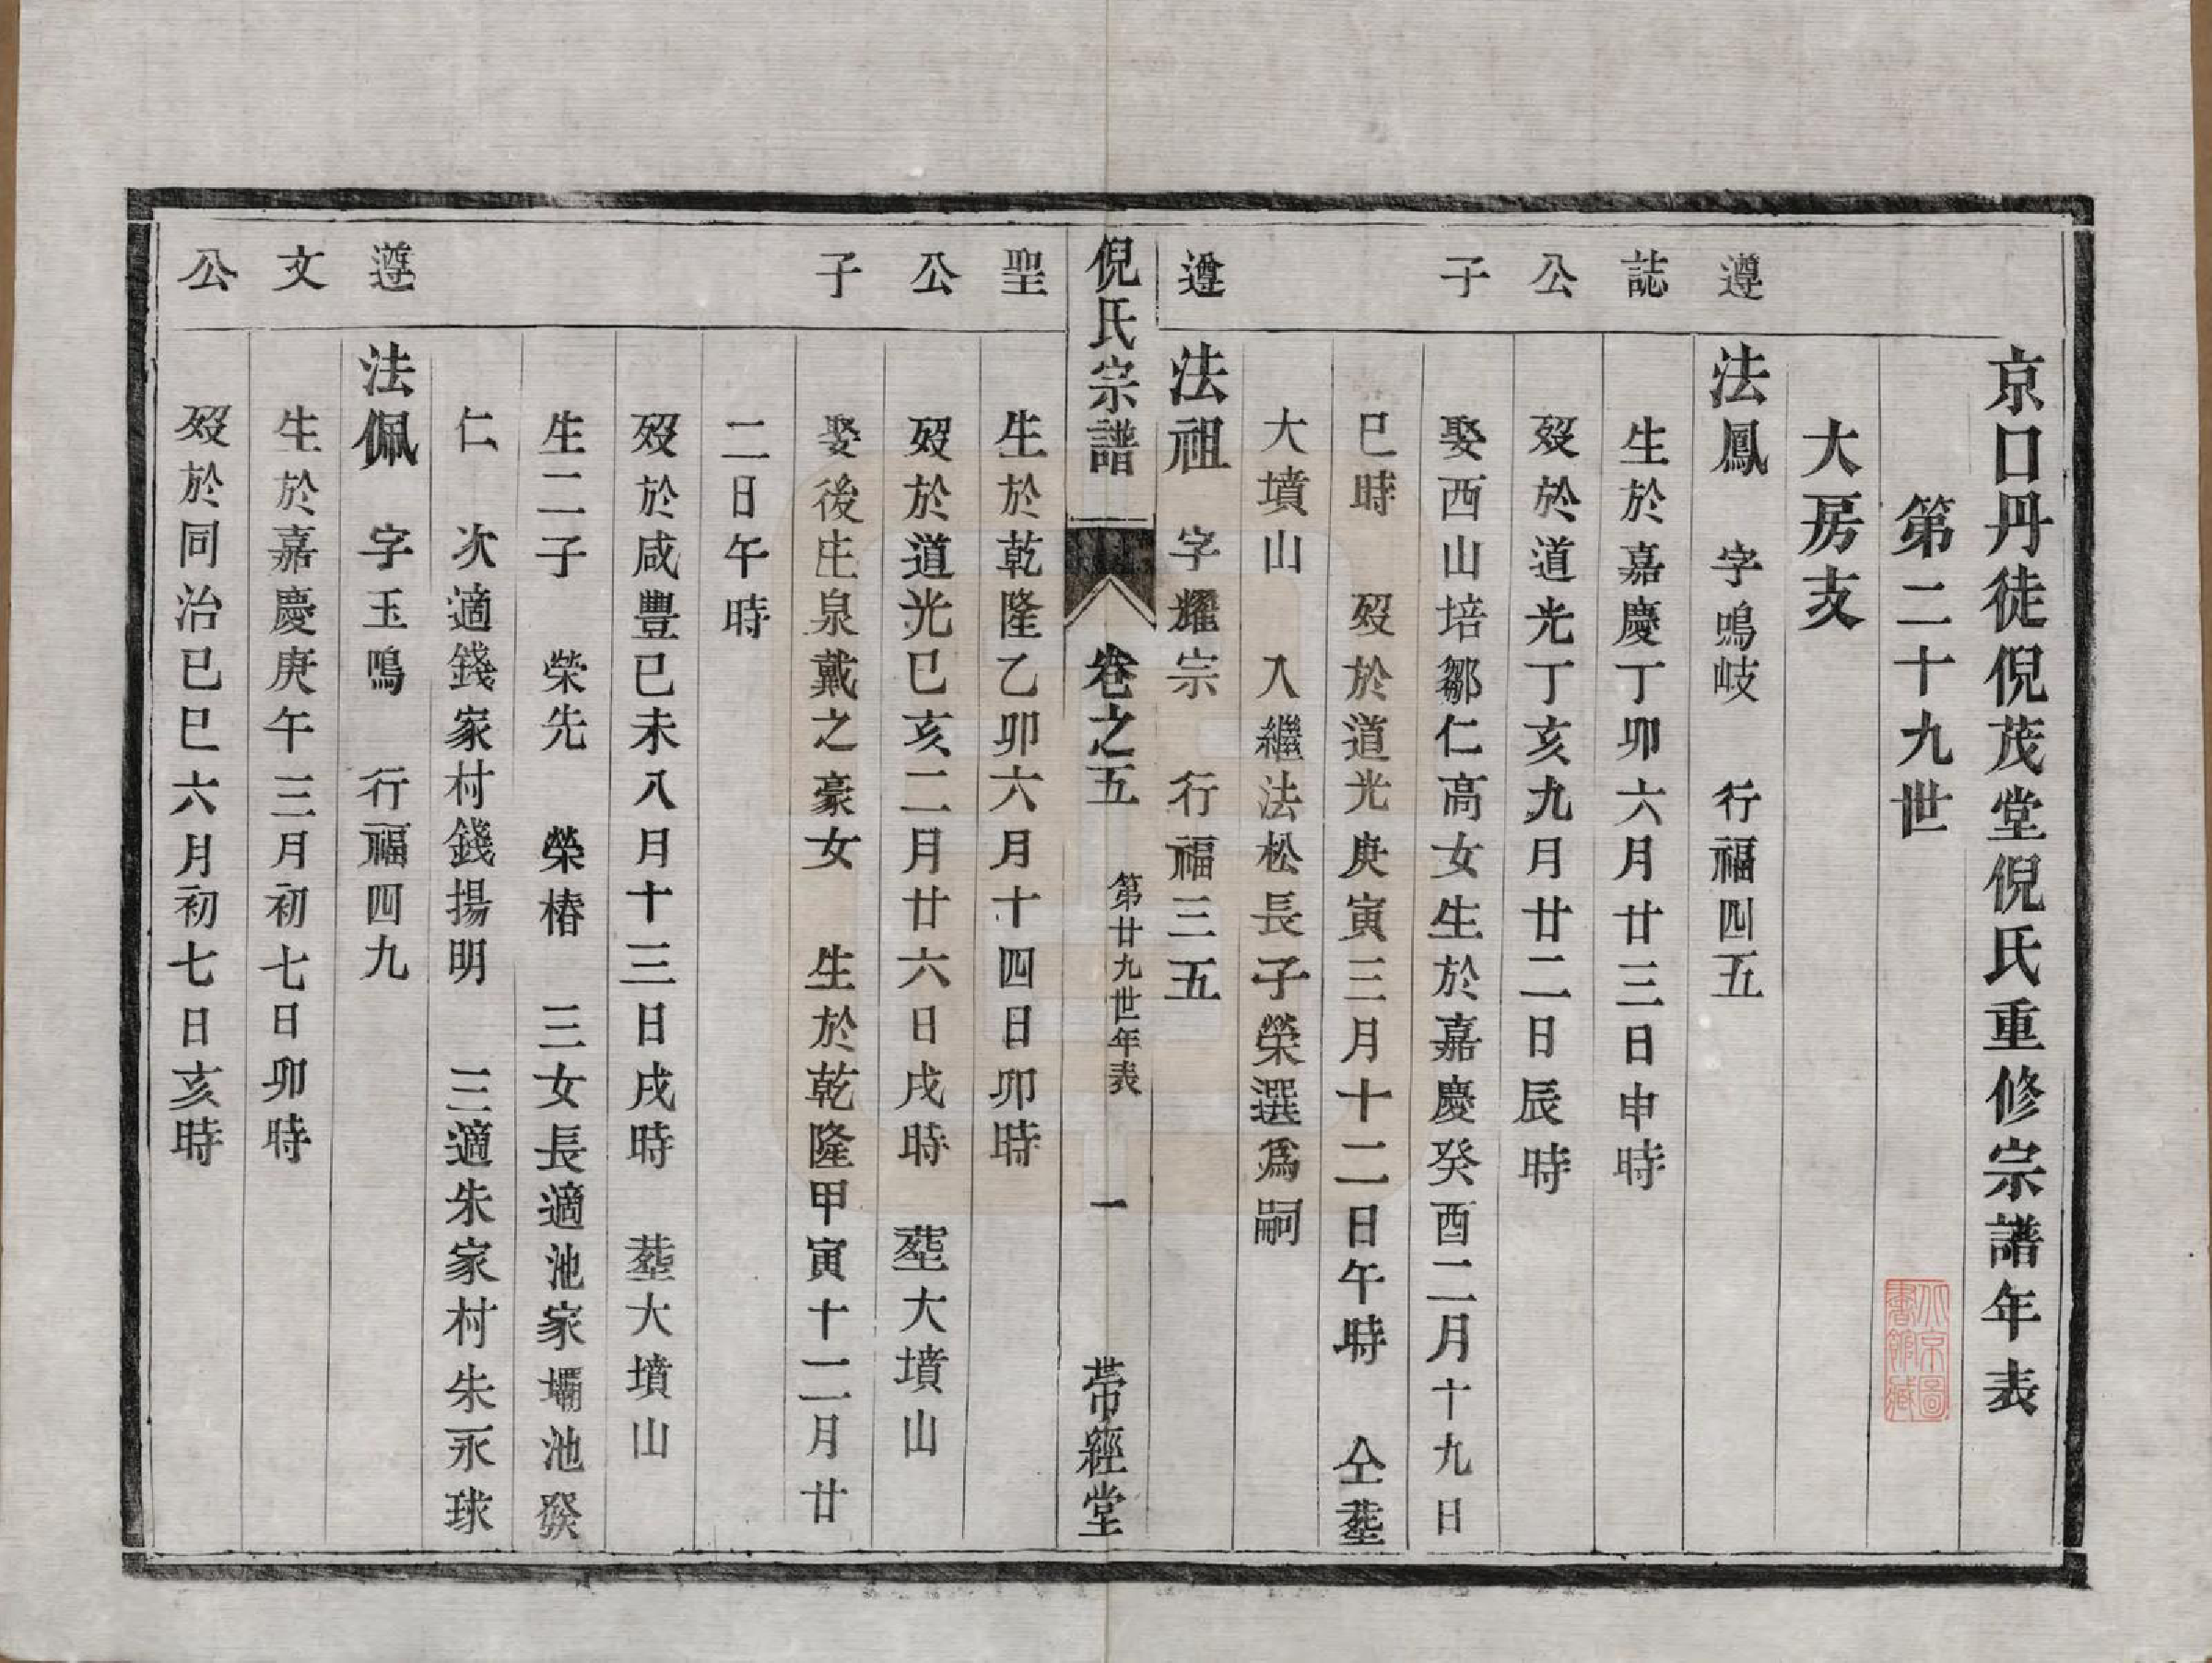 京口丹徒倪茂堂倪氏重修宗譜年表
第二十九世
大房支
遵 法鳳 字鳴岐 行福四五
誌 生於嘉慶丁卯六月廿三日申時
公 歿於道光丁亥九月廿二日辰時
子 娶西山培鄒仁高女生於嘉慶癸酉二月十九日
巳時 歿於道光庚寅三月十二日午時 仝塟
大墳山 入繼法松長子榮選爲嗣
遵 法祖 字耀宗 行福三五
倪氏宗譜 卷之五 第廿九世年表 一 帶經堂
聖 生於乾隆乙卯六月十四日卯時
公 歿於道光已亥二月廿六日戌時 塟大墳山
子 娶後庄泉戴之豪女 生於乾隆甲寅十二月廿
二日午時
歿於咸豐已未八月十三日戌時 塟大墳山
生二子 榮先 榮椿 三女長適池家壩池發
仁 次適錢家村錢揚明 三適朱家村朱永球
遵 法佩 字玉鳴 行福四九
文 生於嘉慶庚午三月初七日卯時
公 歿於同治已巳六月初七日亥時
北京圖書館藏